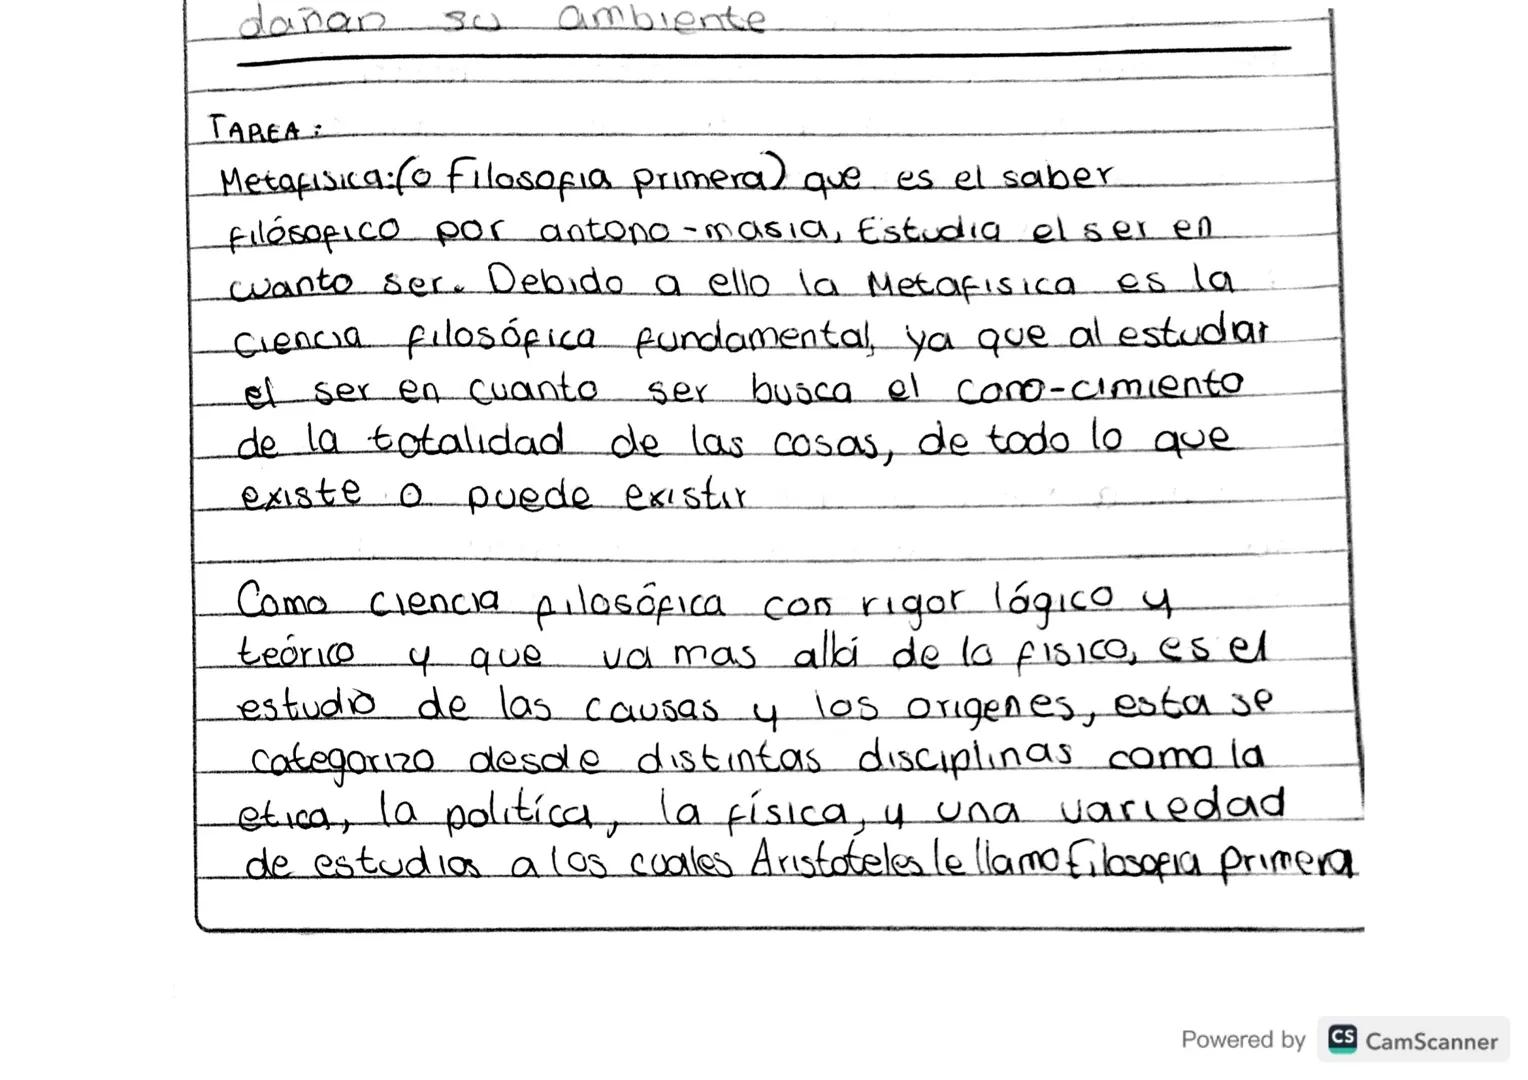 dañan su ambiente
TAREA:
Metafisica:(o filosofia primera) que es el saber
filósofico por antono-masia, Estudia el ser en
cuanto ser. Debido a ello la Metafisica es la
ciencia filosófica fundamental, ya que al estudiar
el ser en cuanto ser busca el cono-cimiento
de la totalidad de las cosas, de todo lo que
existe o puede existir
Como ciencia filosófica con rigor lógico y
teórico y que va mas allá de lo fisico, es el
estudio de las causas y los origenes, esta se
categorizo desde distintas disciplinas como la
etica, la política, la física, y una variedad
de estudios a los cuales Aristóteles le llamo filosofia primera
Powered by CS CamScanner